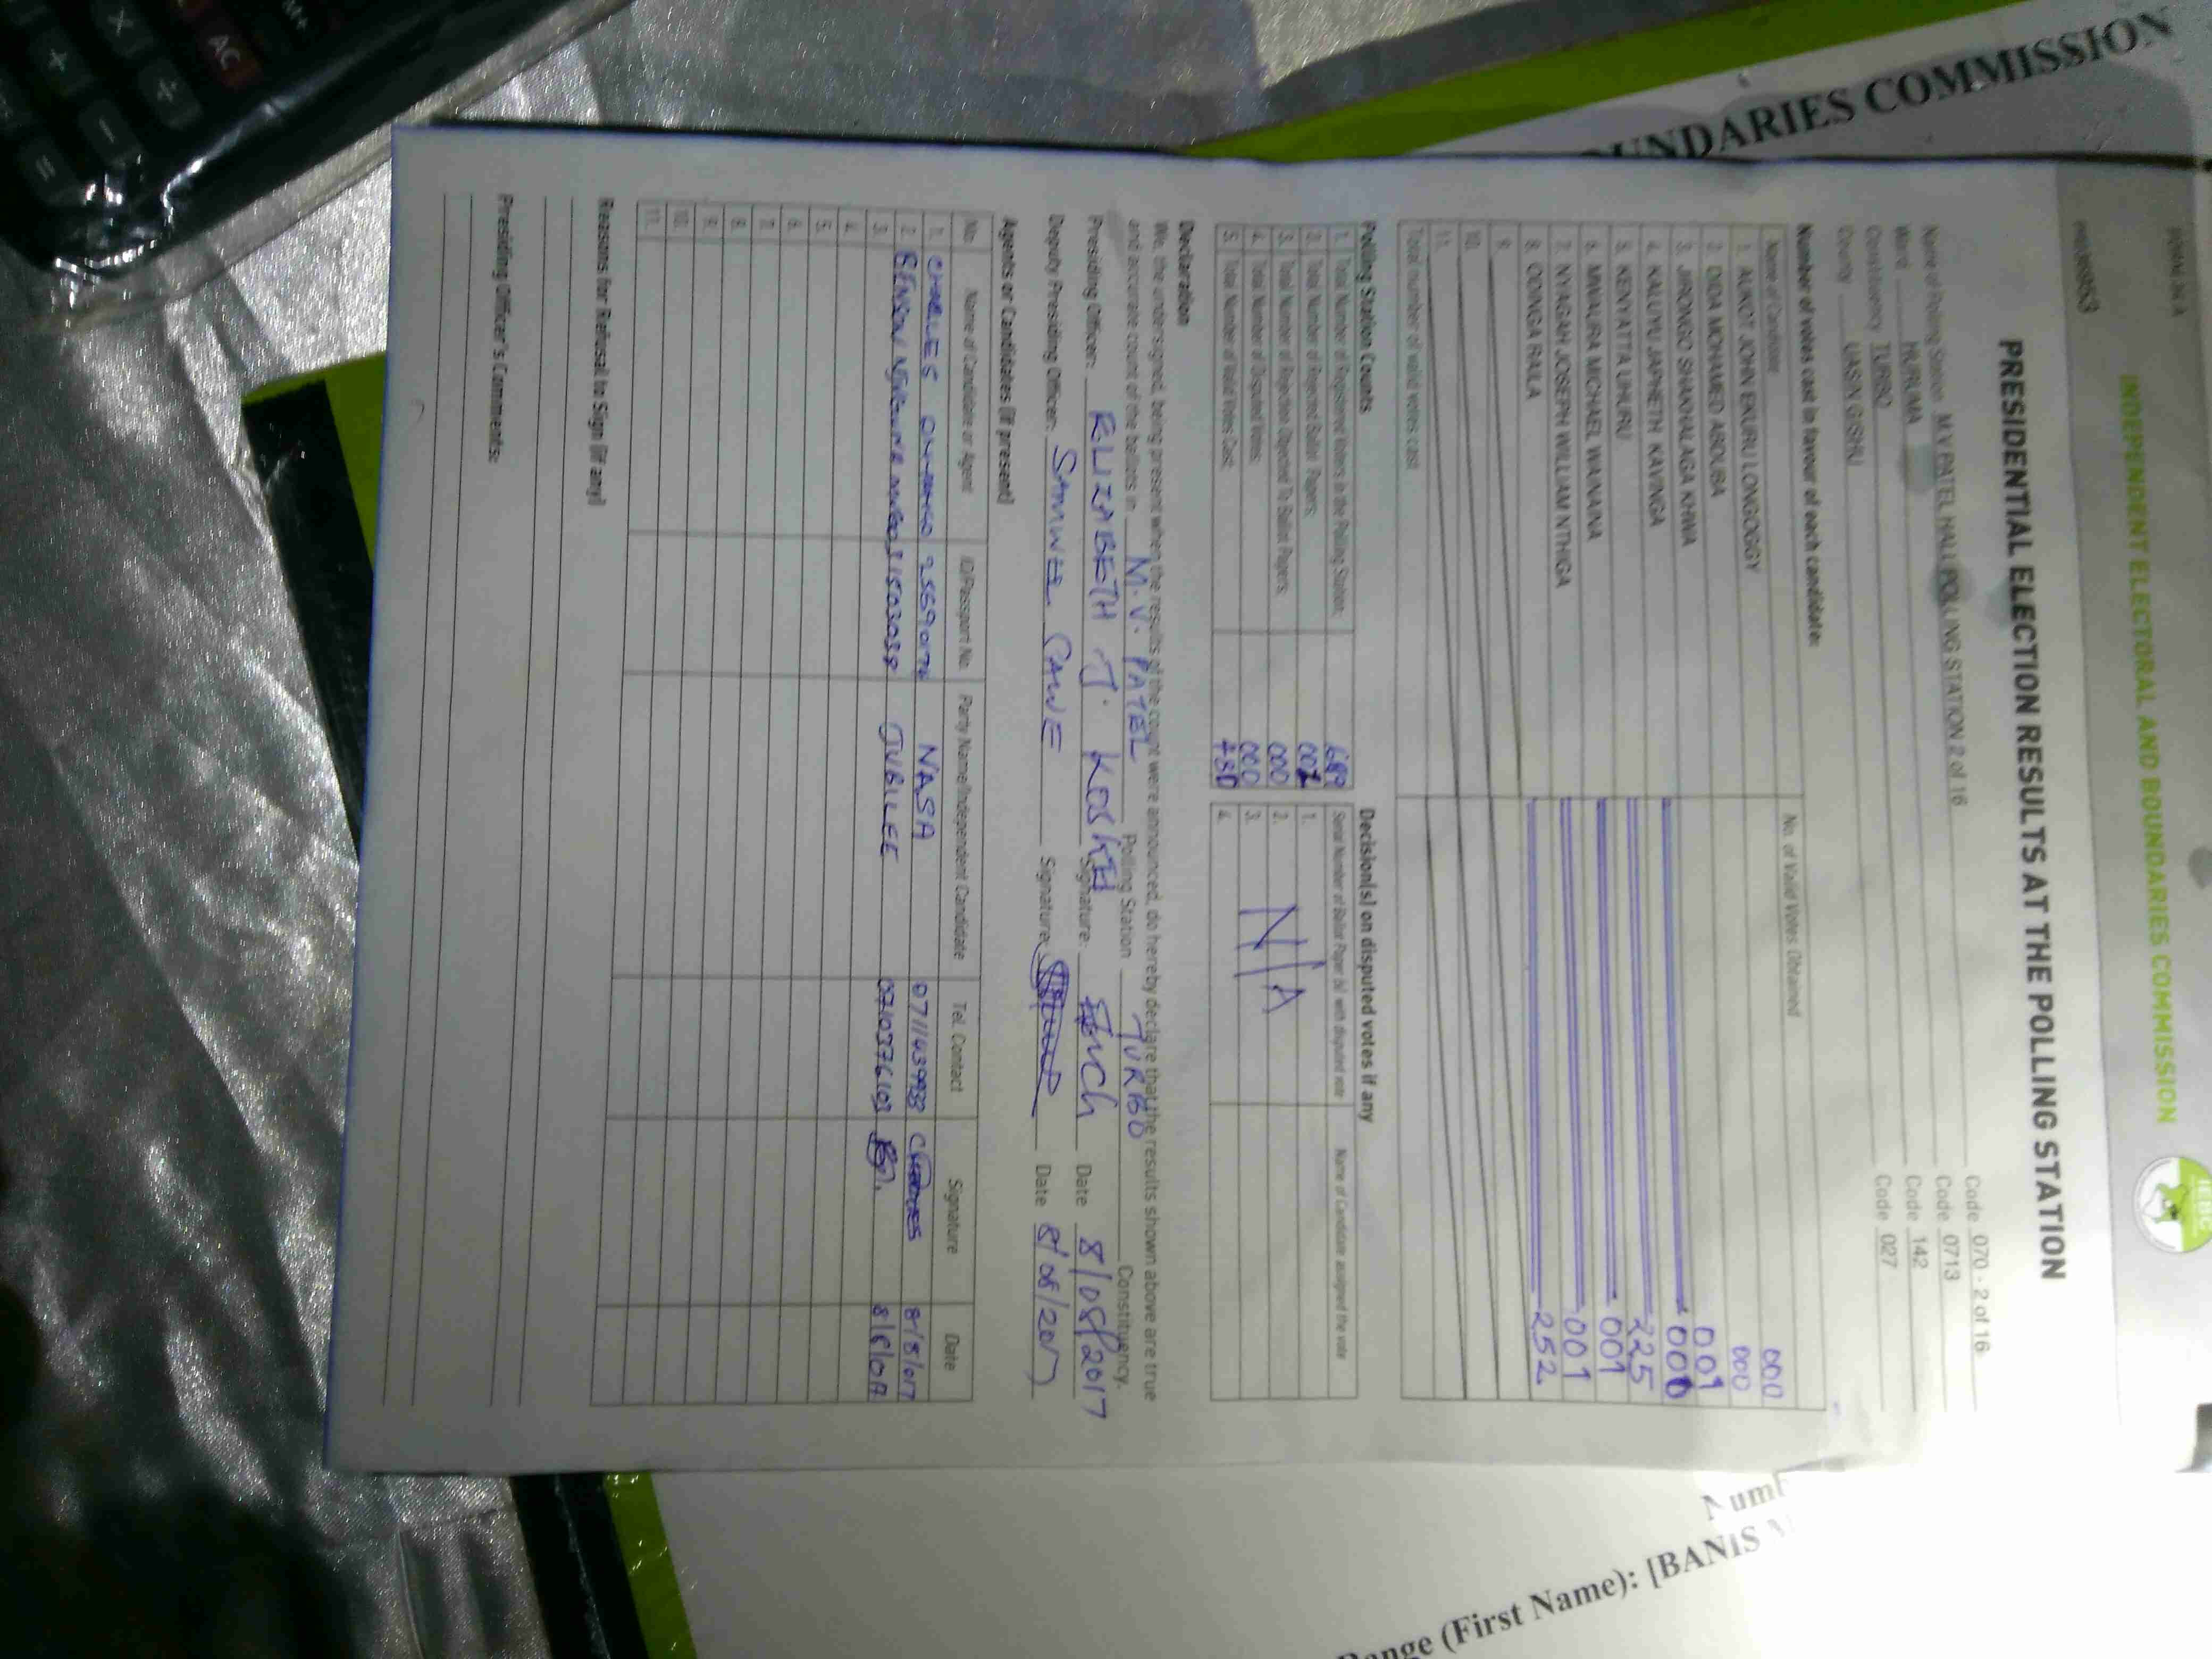 FORM 34 A
INDEPENDENT ELECTORAL AND BOUNDARIES COMMISSION
PRESIDENTIAL ELECTION RESULTS AT THE POLLING STATION
Name of Polling Station M.V PATEL HALL POLLING STATION 2 of 16 Code 070 - 2 of 16
Ward HURUMA Code 0713
Constituency TURBO Code 142
County UASIN GISHU Code 027
Number of votes cast in favour of each candidate:
Name of Candidate No. of Valid Votes Obtained
1. AUKOT JOHN EKURU LONGOGGY 000
2. DIDA MOHAMED ABDUBA 000
3. JIRONGO SHAKHALAGA KHWA 001
4. KALUYU JAPHETH KAVINGA 000
5. KENYATTA UHURU 225
6. MWAURA MICHAEL WAINAINA 001
7. NYAGAH JOSEPH WILLIAM NTHIGA 001
8. ODINGA RAILA 252
9.
10.
11.
Total number of valid votes cast
Polling Station Counts Decision(s) on disputed votes if any
1. Total Number of Registered Voters in the Polling Station: 689 Serial Number of Ballot Paper (s) with disputed vote Name of Candidate assigned the vote
2. Total Number of Rejected Ballot Papers: 1.
3. Total Number of Rejection Objected To Ballot Papers: 000 2. N/A
4. Total Number of Disputed Votes: 000 3.
5. Total Number of Valid Votes Cast: 480 4.
Declaration
We, the undersigned, being present when the results of the count were announced, do hereby declare that the results shown above are true
and accurate count of the ballots in M.V. PATEL Polling Station TURBO Constituency.
Presiding Officer: ELIZABETH J. KOSKEI Signature: Date 8/08/2017
Deputy Presiding Officer: Signature: Date 8/08/2017
Agents or Candidates (if present)
No. Name of Candidate or Agent ID/Passport No. Party Name/Independent Candidate Tel. Contact Signature Date
1. CHARLES NASA CHARLES 8/8/017
2. BENSON JUBILEE 0710376103
3.
4.
5.
6.
7.
8.
9.
10.
11.
Reasons for Refusal to Sign (if any)
Presiding Officer's Comments:
UNDARIES COMMISSION
Range (First Name): [BANIS
AC